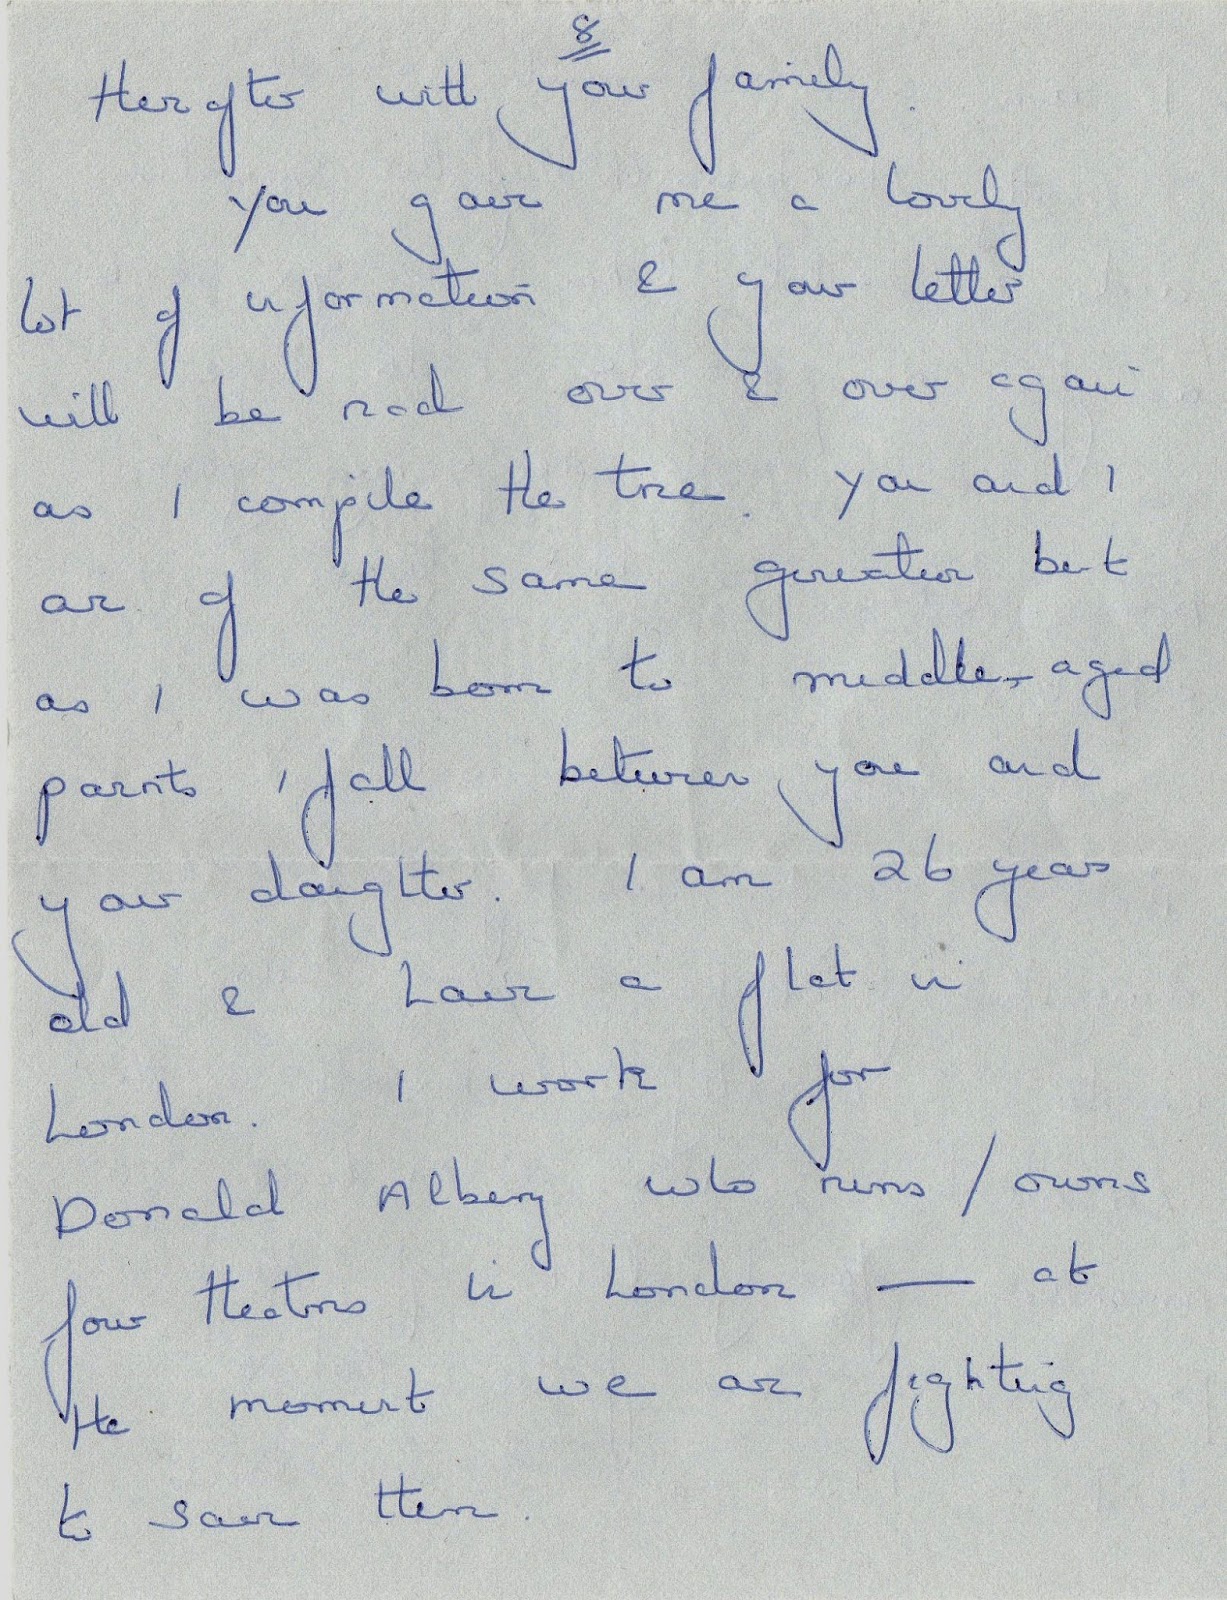 8
Hereafter with your family.
You gave me a lovely
lot of information & your letter
will be read over & over again
as I compile the tree. You and I
are of the same generation but
as I was born to middle-aged
parents I fall between you and
your daughter. I am 26 years
old & have a flat in
London. I work for
Donald Albery who runs / owns
four theatres in London — at
the moment we are fighting
to save them.